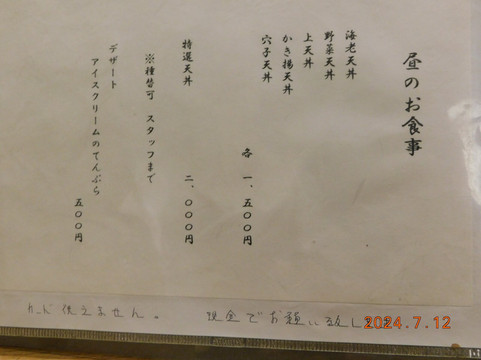 昼のお食事
海老天丼
野菜天丼
上天丼
かき揚天丼
穴子天丼
各 一、五〇〇円
特選天丼 二、〇〇〇円
※種替可 スタッフまで
デザート
アイスクリームのてんぷら
五〇〇円
カード使えません。 現金でお願い致します
2024.7.12